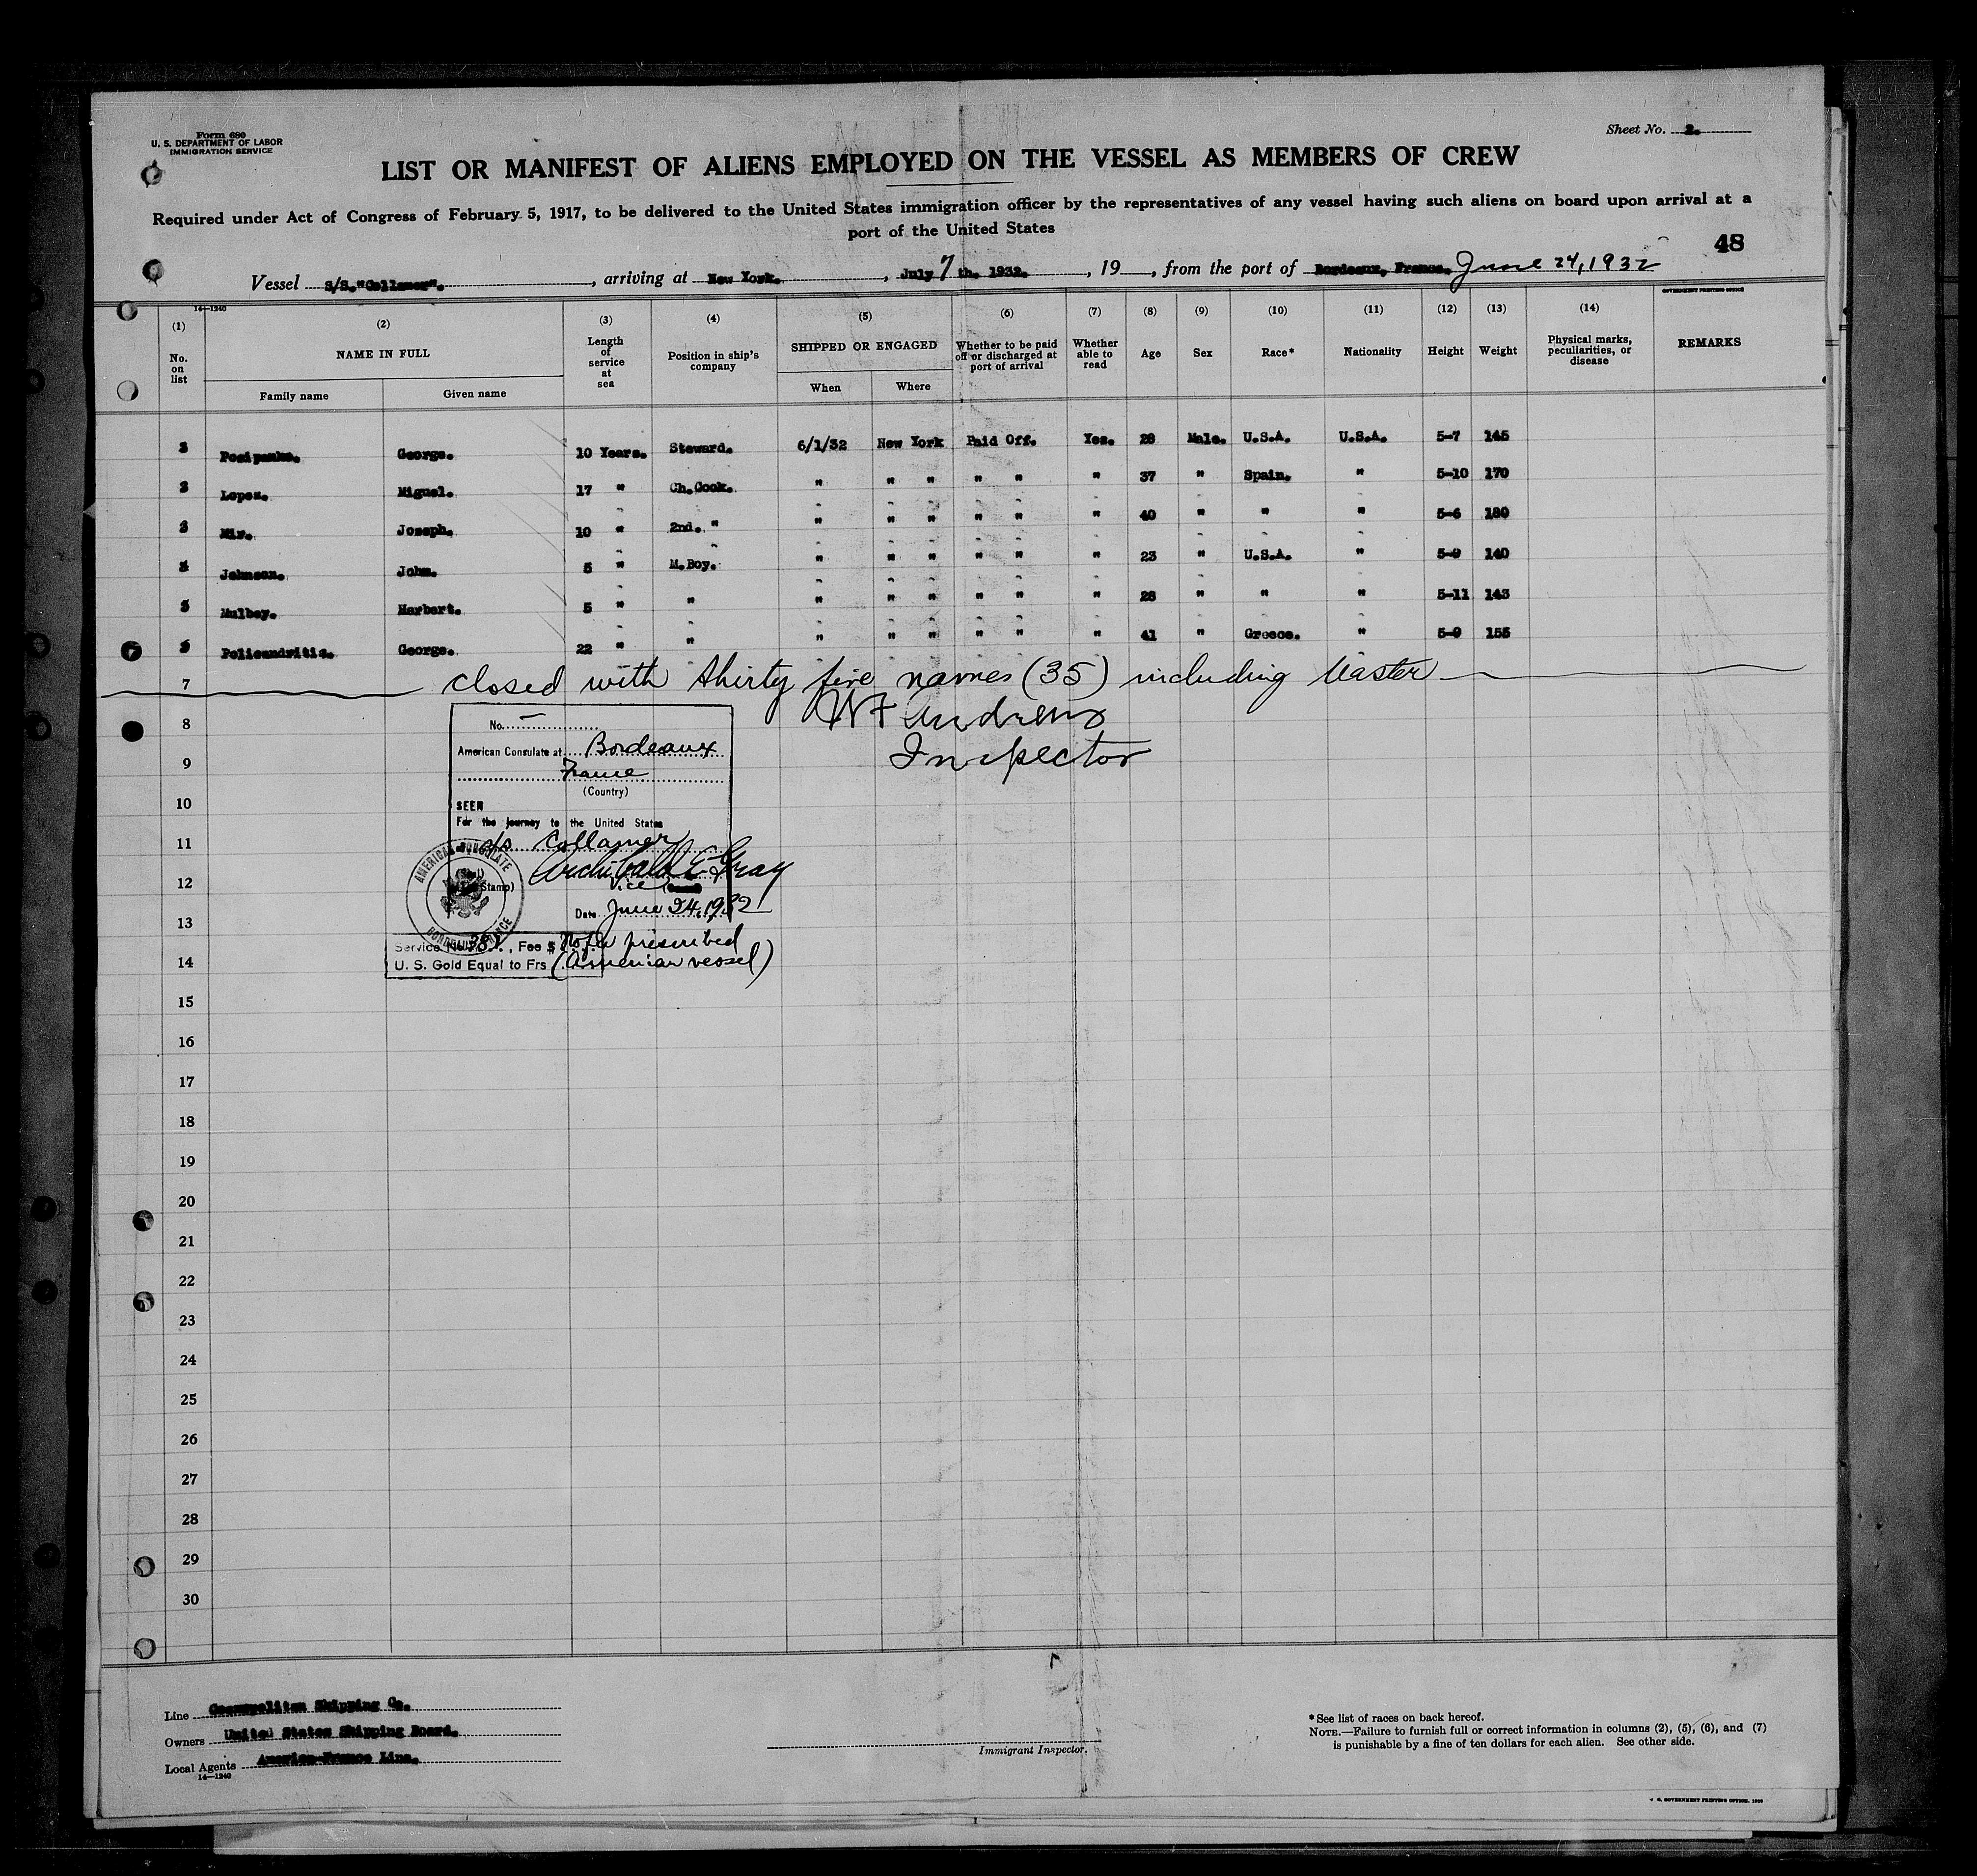 Form 680
U. S. DEPARTMENT OF LABOR
IMMIGRATION SERVICE
Sheet No. 2.
LIST OR MANIFEST OF ALIENS EMPLOYED ON THE VESSEL AS MEMBERS OF CREW
Required under Act of Congress of February 5, 1917, to be delivered to the United States immigration officer by the representatives of any vessel having such aliens on board upon arrival at a
port of the United States
48
Vessel S/S."Collamer". , arriving at New York. , July 7 th. 1932. , 19 , from the port of Bordeaux, France. June 24, 1932
GOVERNMENT PRINTING OFFICE
14—1240
(1) (2) (3) (4) (5) (6) (7) (8) (9) (10) (11) (12) (13) (14)
No. on list NAME IN FULL Length of service at sea Position in ship's company SHIPPED OR ENGAGED Whether to be paid off or discharged at port of arrival Whether able to read Age Sex Race* Nationality Height Weight Physical marks, peculiarities, or disease REMARKS
Family name Given name When Where
George. 10 Years. Steward. 6/1/32 New York Paid Off. Yes. 28 Male. U.S.A. U.S.A. 5-7 145
Lopez. Miguel. 17 " Ch.Cook. " " " " " " 37 " Spain. " 5-10 170
Mir. Joseph. 10 " 2nd. " " " " " " " 40 " " " 5-6 180
Johnson. John. 5 " M.Boy. " " " " " " 23 " U.S.A. " 5-9 140
Mulbey. Herbert. 5 " " " " " " " " 28 " " " 5-11 143
Policandritis. George. 22 " " " " " " " " 41 " Greece. " 5-9 155
7 closed with thirty five names (35) including Master
8 W F Andrews
9 Inspector
No.
American Consulate at Bordeaux
France
(Country)
10
SEEN
For the journey to the United States
11 s/s Collamer
AMERICAN CONSULATE
BORDEAUX, FRANCE
(Seal)
(Stamp)
Archibald E Gray
12 Vice
13 Date June 24, 1932
Service No. 381. , Fee $ No fee prescribed
14 U. S. Gold Equal to Frs (American vessel)
15
16
17
18
19
20
21
22
23
24
25
26
27
28
29
30
Line Cosmopolitan Shipping Co.
Owners United States Shipping Board.
Local Agents America-France Line.
14—1240
Immigrant Inspector.
*See list of races on back hereof.
NOTE.—Failure to furnish full or correct information in columns (2), (5), (6), and (7)
is punishable by a fine of ten dollars for each alien. See other side.
GOVERNMENT PRINTING OFFICE.